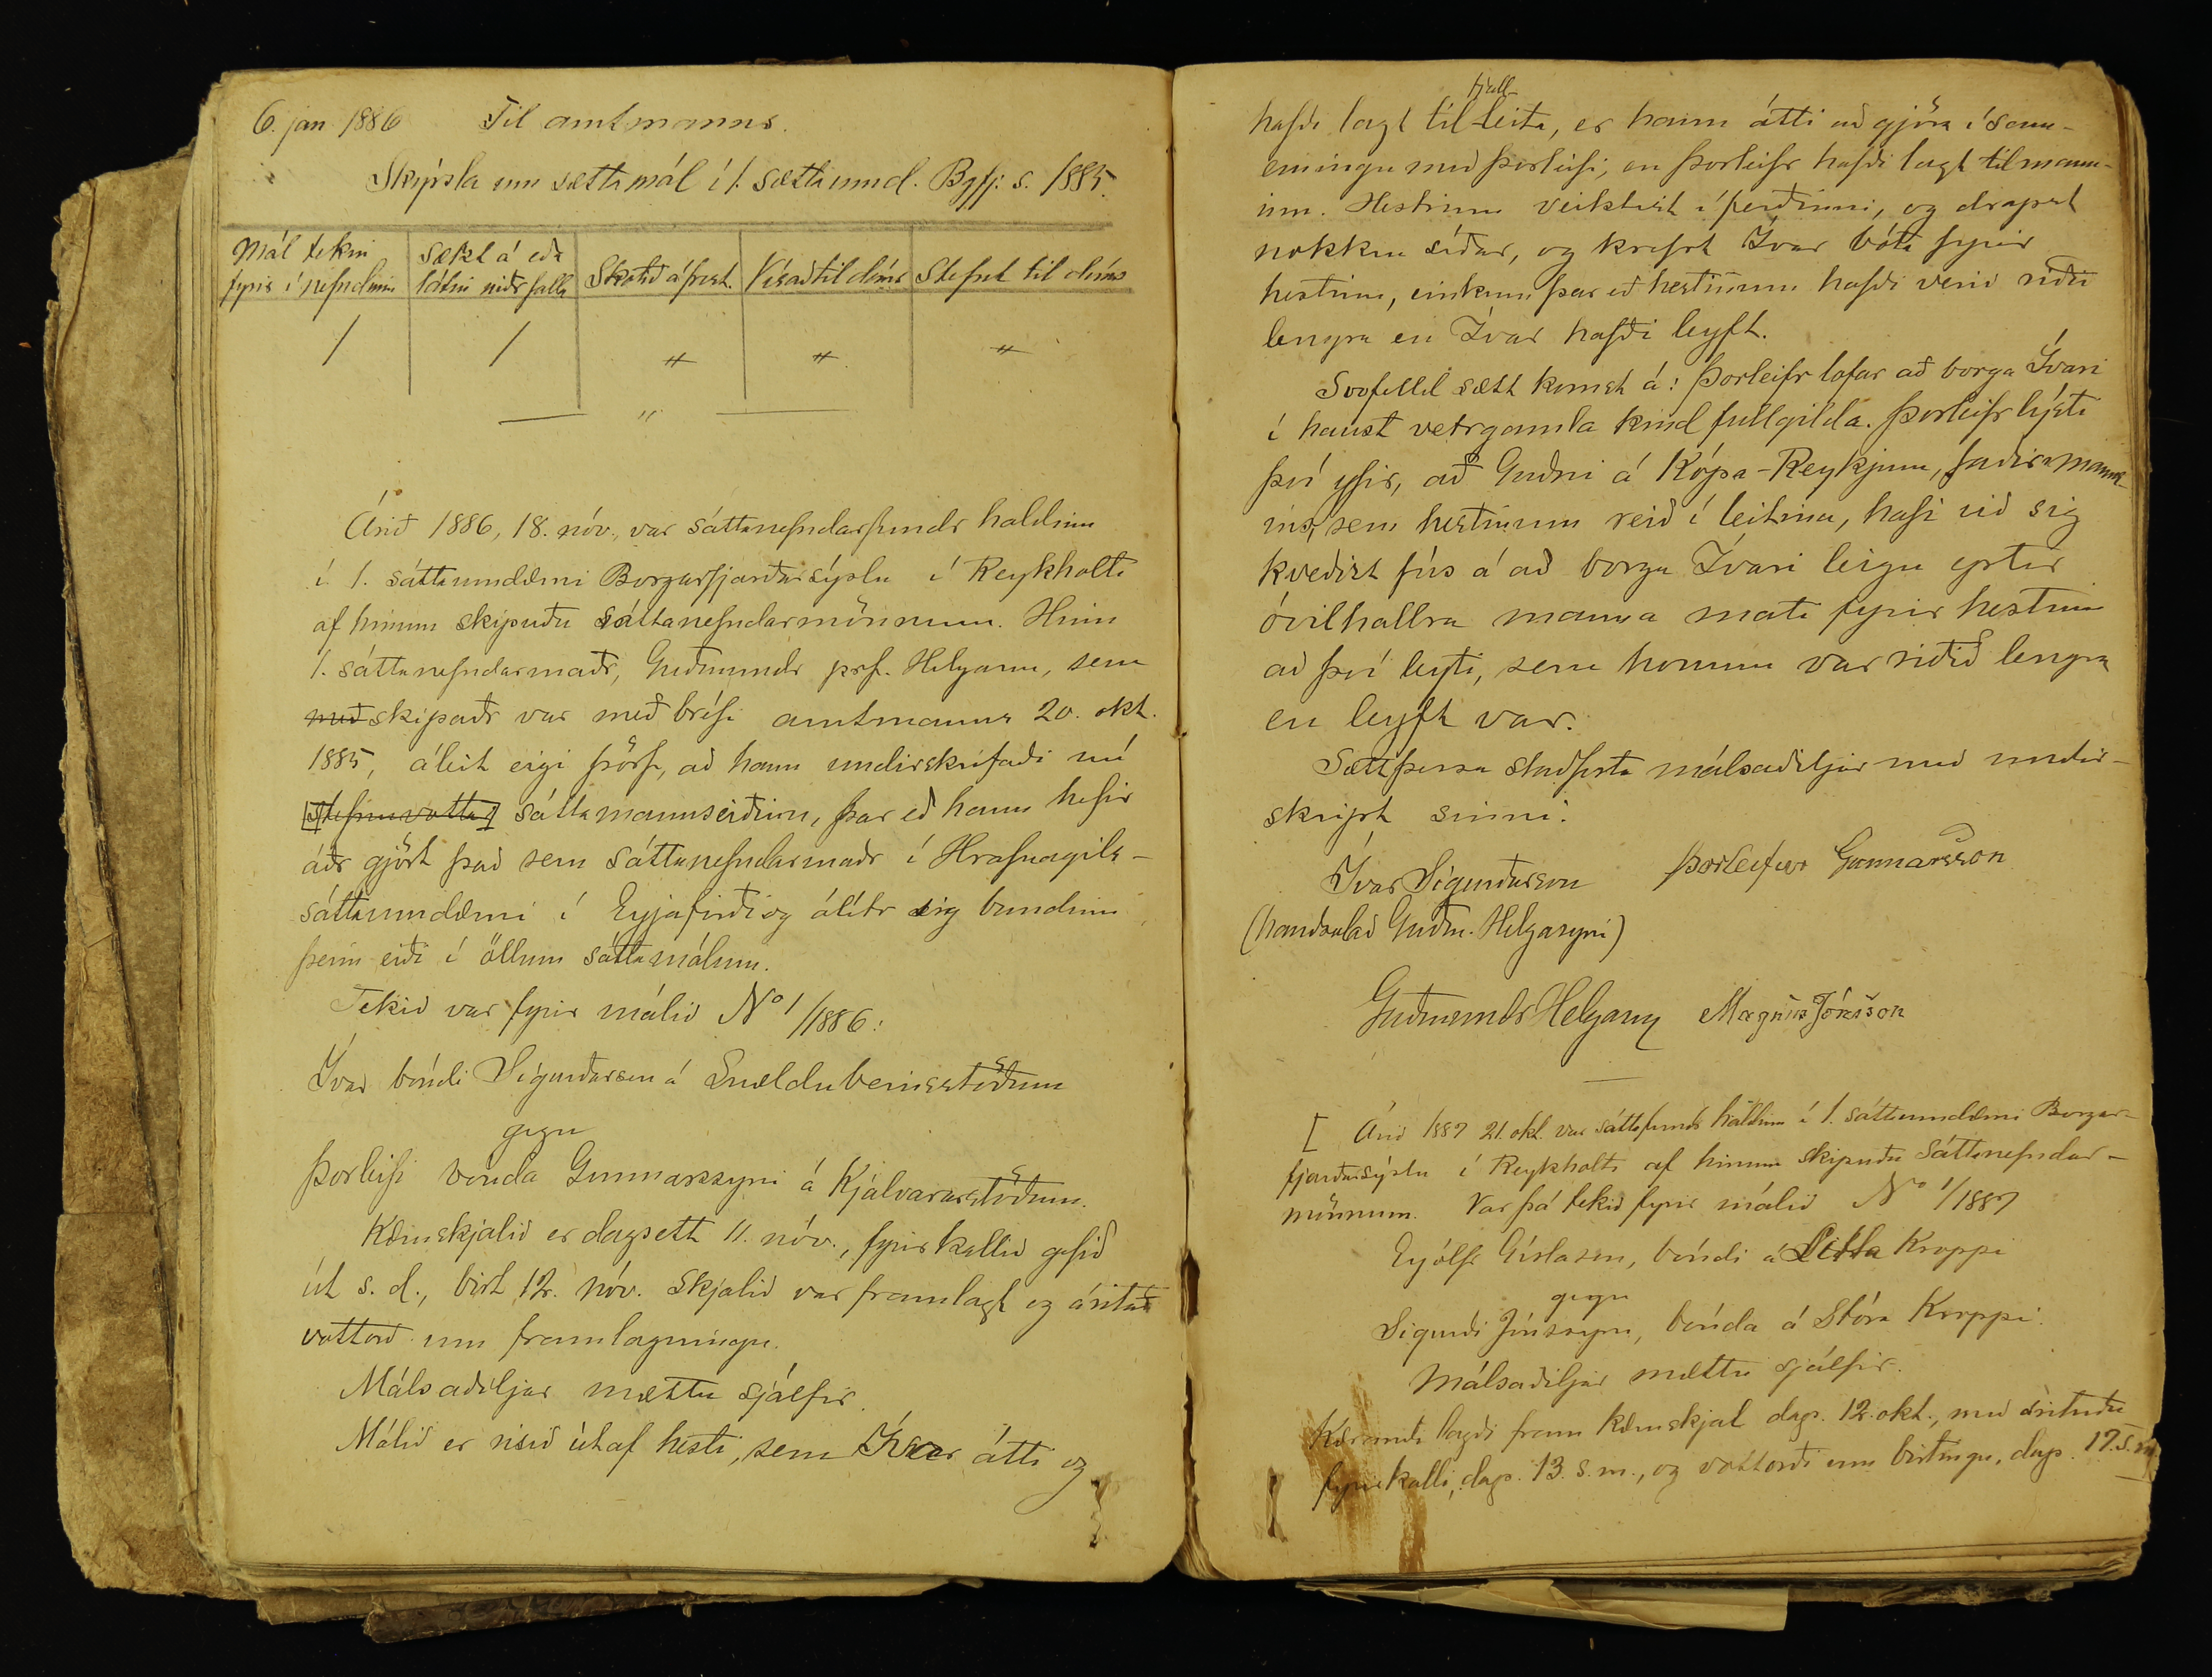 6. jan 1886 Til amtmanns.
Skýrsla um sættamál í 1. sættaumd. Bgfj. s. 1885.
Mál tekin fyrir í nefndinni | Sætzt á eða látin niðr falla | Skotið á frest. | Vísað til dóms | Stefnt til dóms
1 | 1 | " | " | "
— " —
Árið 1886, 18. nóv., var sáttanefndarfundr haldinn
í 1. sáttaumdæmi Borgarfjarðarsýslu í Reykholti
af hinum skipuðu sáttanefndarmönnum. Hinn
1. sáttanefndarmaðr, Guðmundr prf. Helgason, sem
með skipaðr var með bréfi amtmanns 20. okt.
1885, áleit eigi þörf, að hann undirskrifaði nú
[stefnuvotta] sáttamannseiðinn, þar eð hann hefir
áðr gjört það sem sáttanefndarmaðr í Hrafnagils-
sáttaumdæmi í Eyjafirði og álítr sig bundinn
þeim eiði í öllum sáttamálum.
Tekið var fyrir málið No 1/1886:
Ívar bóndi Sigurðsson á Snældubeinsstöðum
gegn
Þorleifi bónda Gunnarssyni á Kjalvararstöðum.
Kæruskjalið er dagsett 11. nóv., fyrirkallið gefið
út s. d., birt 12. nóv. Skjalið var framlagt og áritað
vottorð um framlagningu.
Málsaðiljar mættu sjálfir.
Málið er risið út af hesti, sem Ívar átti og
hafði lagt til fjall-leita, er hann átti að gjöra í sam-
einingu með Þorleifi, en Þorleifr hafði lagt til mann-
inn. Hestrinn veiktist í ferðinni, og drapst
nokkru síðar, og krefst Ívar bóta fyrir
hestinn, einkum þar eð hestinum hafði verið riðið
lengra en Ívar hafði leyft.
Svofelld sætt komst á: Þorleifr lofar að borga Ívari
í haust vetrgamla kind fullgilda. Þorleifr lýsti
því yfir, að Guðni á Kópa-Reykjum, faðir manns-
ins, sem hestinum reið í leitina, hafi við sig
kveðist fús á að borga Ívari leigu eptir
óvilhallra manna mati fyrir hestinn
að því leyti, sem honum var riðið lengra
en leyft var.
Sætt þessa staðfesta málsaðiljar með undir-
skript sinni.
Ívar Sigurðsson Þorleifur Gunnarsson
(handsalað Guðm. Helgasyni)
Guðmundr Helgason Magnús Jónsson
[ Árið 1887 21. okt. var sáttafundr haldinn í 1. sáttaumdæmi Borgar-
fjarðarsýslu í Reykholti af hinum skipuðu sáttanefndar-
mönnum. Var þá tekið fyrir málið No 1/1887
Eyjólfr Gíslason, bóndi á Litla Kroppi
gegn
Sigurði Jónssyni, bónda á Stóra Kroppi.
Málsaðiljar mættu sjálfir.
Kærandi lagði fram kæruskjal dags. 12. okt., með árituðu
fyrirkalli, dags. 13. s. m., og vottorði um birtingu, dags. 17. s. m.